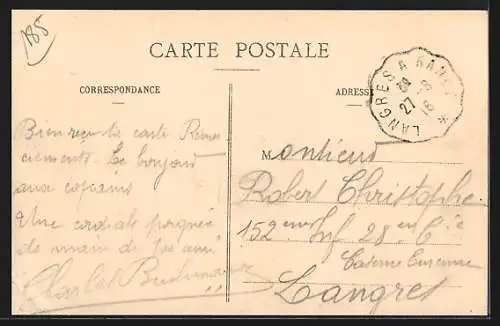 185
CARTE POSTALE
CORRESPONDANCE
ADRESSE
LANGRES A
27
16
Bien reçu ta carte Remer
ciements. Le bonjour
aux copains
Une cordiale poignée
de main de ton ami
Charles
Monsieur
Robert Christophe
152eme Inf 28eme Cie
Caserne Turenne
Langres